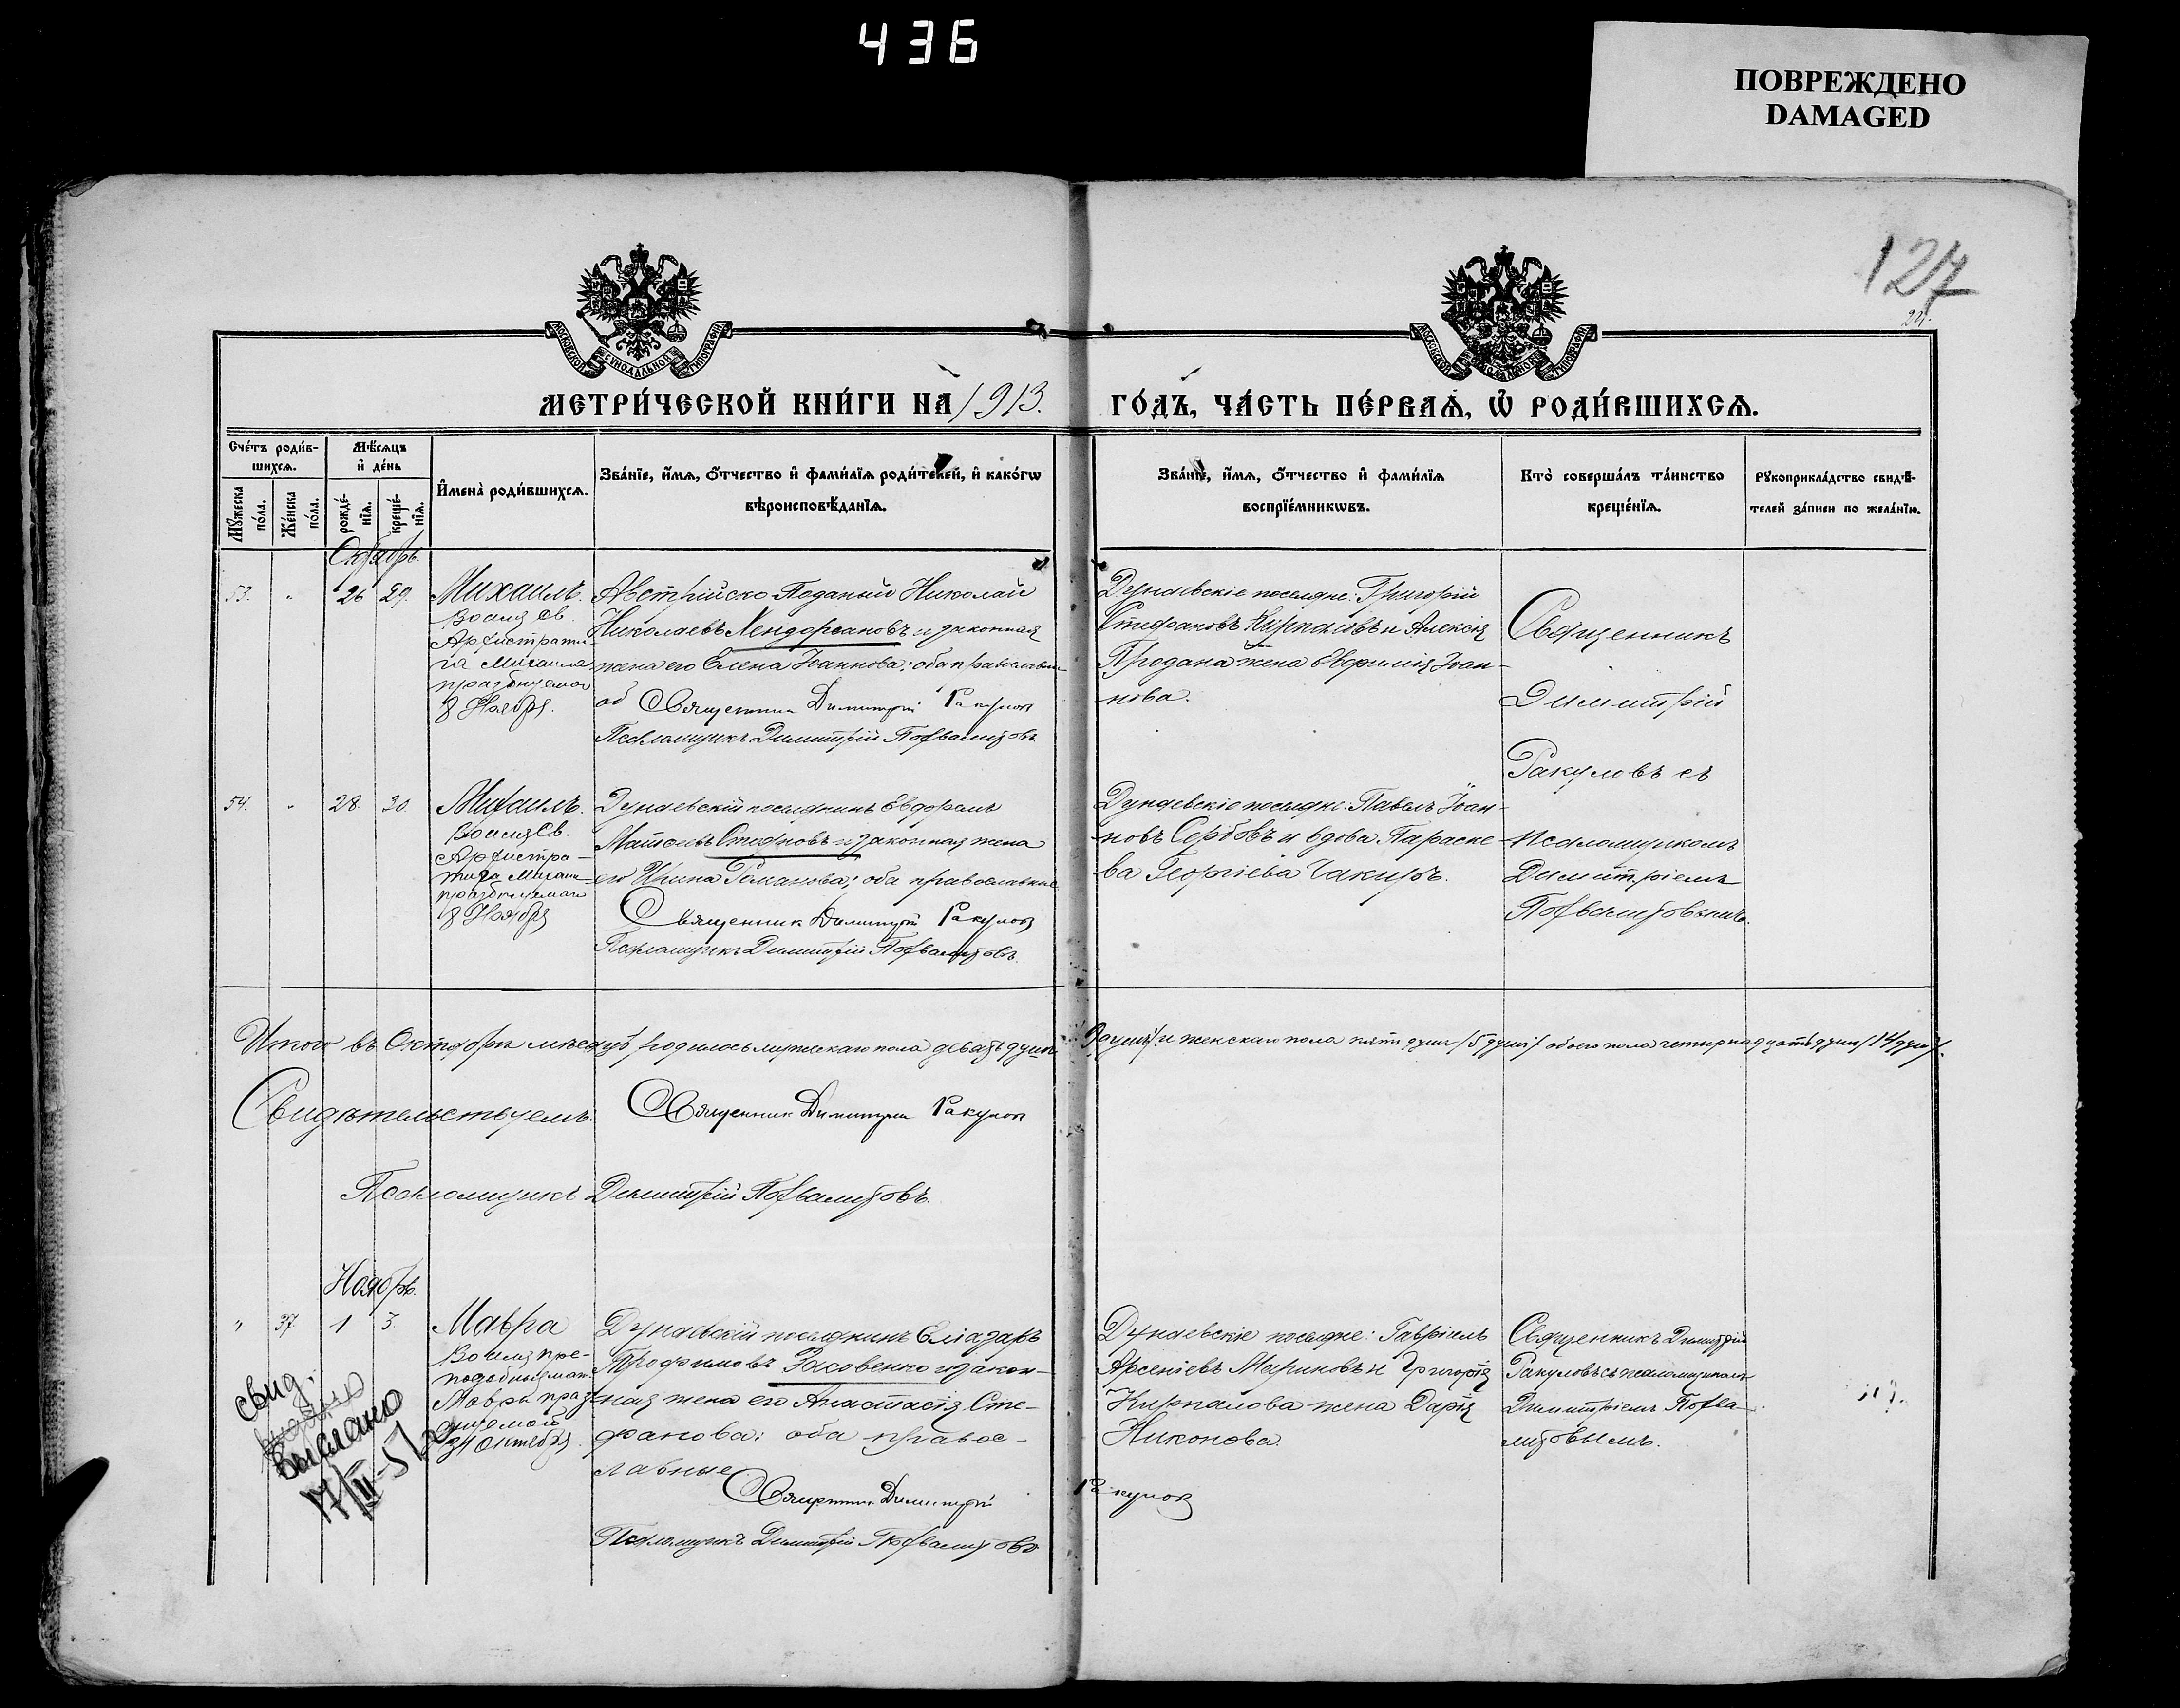 436
ПОВРЕЖДЕНО
DAMAGED
127
24.
МОСКОВСКОЙ СѴНОДАЛЬНОЙ ТИПОГРАФІИ
МОСКОВСКОЙ СѴНОДАЛЬНОЙ ТИПОГРАФІИ
МЕТРИ́ЧЕСКОЙ КНИ́ГИ НА 1913.
ГО́ДЪ, ЧА́СТЬ ПЕ́РВАѦ, Ѡ҆ РОДИ́ВШИХСѦ.
Сче́тъ роди́в-
шихсѧ.
Мꙋ́жеска
по́ла.
Же́нска
по́ла.
Мѣ́сѧцъ
и҆ де́нь
рожде́-
нїѧ.
креще́-
нїѧ.
И҆мена̀ роди́вшихсѧ.
Зва́нїе, и҆́мѧ, ѻ҆́тчество и҆ фами́лїѧ роди́телей, и҆ како́гѡ
вѣроисповѣ́данїѧ.
Зва́нїе, и҆́мѧ, ѻ҆́тчество и҆ фами́лїѧ
воспрїе́мникѡвъ.
Кто̀ соверша́лъ та́инство
креще́нїѧ.
Рꙋкоприкла́дство свидѣ́-
телей за́писи по жела́нїю.
Октябрь.
53. " 26 29.
Михаилъ.
Во имя Св.
Архистрати-
га Михаила
празднуемаго
8 Ноября.
Австрійско Поданый Николай
Николаевъ и законная
жена его Елена Іоаннова; оба православн-
ые Священник Димитрій Ракулов
Псаломщикъ Димитрій Похвалитовъ
Дунаевскіе поселяне: Григорій
Стефановъ Кирпаловъ и Алексія
Продана жена Евфимія Іоан-
нова.
Священникъ
Димитрій
Ракуловъ съ
54. " 28. 30.
Михаилъ.
Во имя Св.
Архистра-
тига Михаила
празднуемаго
8 Ноября
Дунаевскій поселянинъ
Стояновъ и законная жена
его Ирина Романова; оба православные
Священник Димитрій Ракулов
Псаломщикъ Димитрій Похвалитовъ.
Дунаевскіе поселяне: Павелъ Іоан-
новъ Сербовъ и вдова Параске-
ва Георгіева Чакиръ.
псаломщикомъ
Димитріемъ
Похвалитовымъ.
Итого въ Октябрѣ мѣсяцѣ, родилось мужескаго пола девять душъ
9 душъ/ и женскаго пола пять душъ /5 душъ/ обоего пола четырнадцать душъ /14 душъ/.
Свидѣтельствуемъ: Священник Димитрий Ракулов
Псаломщикъ Димитрій Похвалитовъ.
Ноябрь.
" 37 1 3.
Мавра
Во имя пре-
подобныя мат.
Мавры праз-
днуемой
31 Октября.
свид.
Выслано
17/III-51
Дунаевскій поселянинъ Елиазаръ
Трофимовъ Расовенко и закон-
ная жена его Анастасія Сте-
фанова; оба правос-
лавные.
Священник Димитрій
Ракулов
Псаломщикъ Димитрій Похвалитовъ
Дунаевскіе поселяне: Гавріилъ
Арсеніевъ Мариновъ и Григорія
Кирпалова жена Дарія
Никонова.
Священникъ Димитрій
Ракуловъ съ псаломщикомъ
Димитріемъ Похва-
литовымъ.